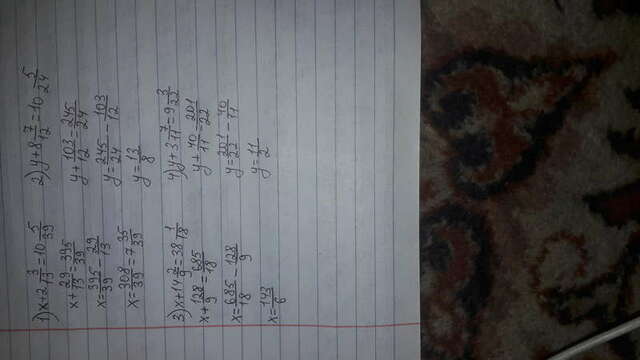 1) x+2 3/13=10 5/39
x+29/13=395/39
x=395/39-29/13
x=308/39=7 35/39
2) y+8 7/12=10 5/24
y+103/12=245/24
y=245/24-103/12
y=13/8
3) x+14 2/9=38 1/18
x+128/9=685/18
x=685/18-128/9
x=143/6
4) y+3 7/11=9 3/22
y+40/11=201/22
y=201/22-40/11
y=11/2